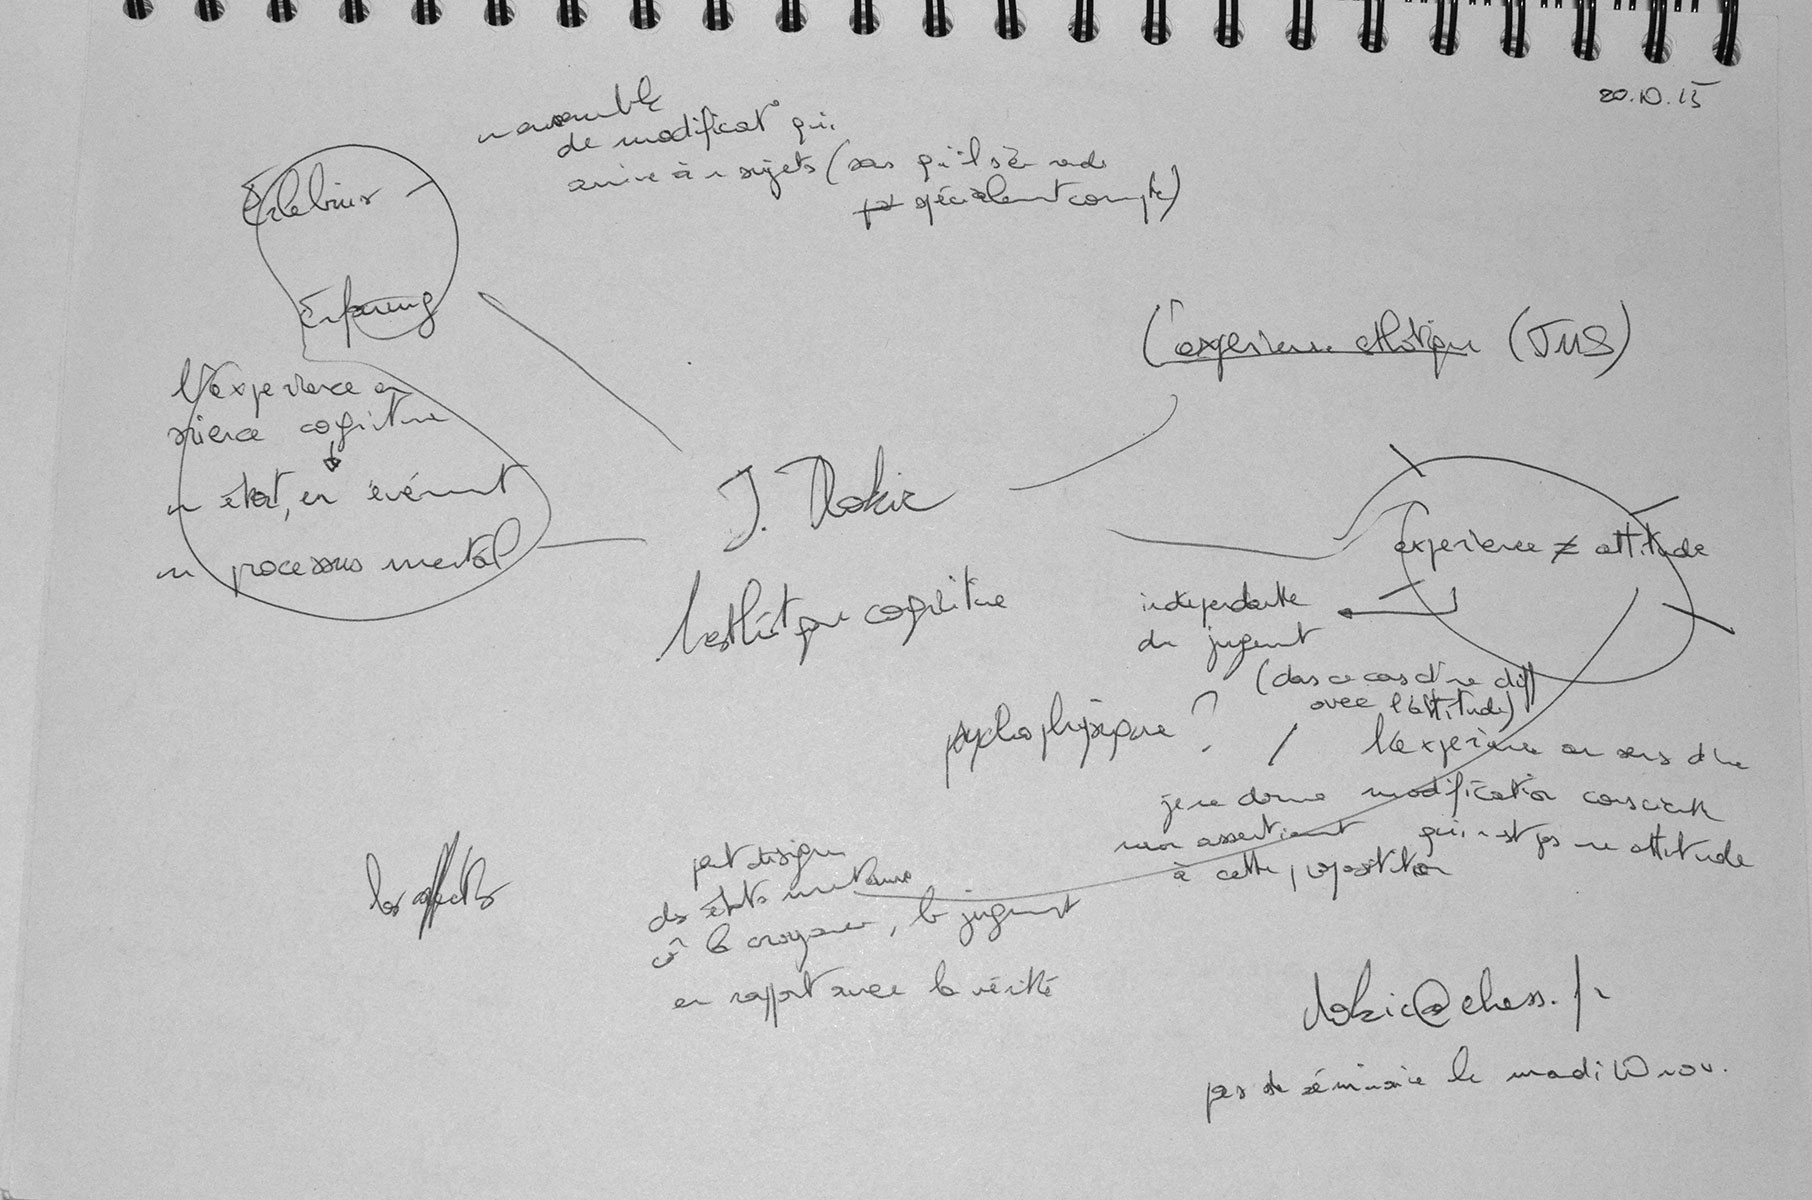 20.10.15
un ensemble
de modificat° qui
arrive à un sujets (sans qu'il s'en rende
pas spécialement compte)
Erlebnis –
Erfarung
L'expérience esthétique (JMS)
l'expérience en
science cognitive
un état, un événement
un processus mental
J. Dokic
L'esthétique cognitive
expérience ≠ attitude
indépendante
du jugement
(dans ce cas c'est une diff
avec l'attitude)
psychophysique ? / l'expérience au sens d'une
je ne donne modification consciente
mon assentiment qui n'est pas une attitude
à cette proposition
les affects
peut désigner
des états mentaux
où la croyance, le jugement
en rapport avec la vérité
dokic@ehess.fr
pas de séminaire le mardi 10 nov.